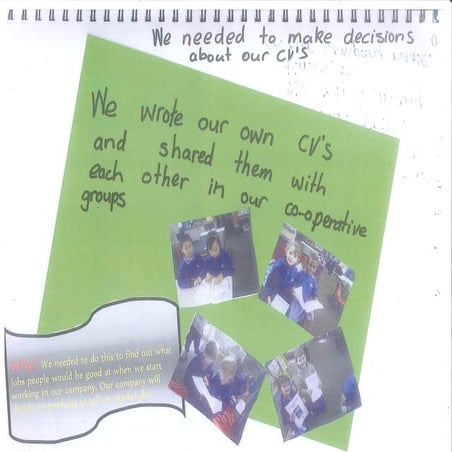 We needed to make decisions
about our CV'S
We wrote our own CV's
and shared them with
each other in our co-operative
groups
Why? We needed to do this to find out what
jobs people would be good at when we start
working in our company. Our company will
market day